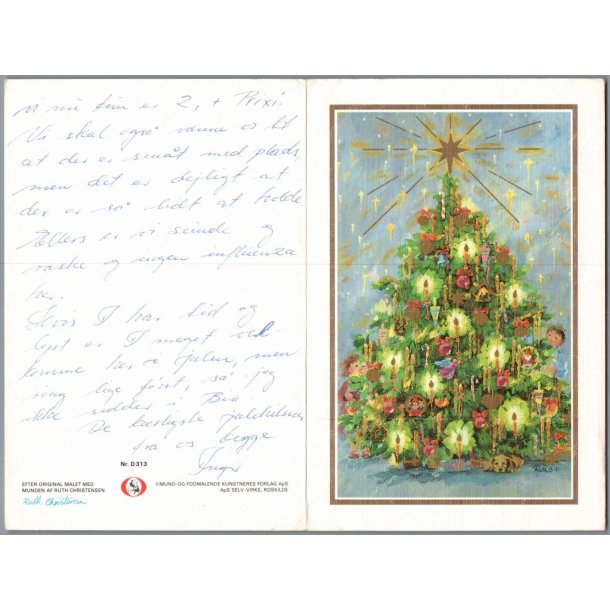 vi nu kun er 2, + Trixi.
Vi skal også vænne os til
at der er småt med plads,
men det er dejligt at
der er så lidt at holde
Ellers er vi sunde og
raske og ingen influenza
her.
Hvis I har tid og
lyst er I meget vel-
komne her i Julen, men
ring lige først, så jeg
ikke sidder i Bio.
De kærligste julehilsner
fra os begge
Inger
Nr. D 313
EFTER ORIGINAL MALET MED
MUNDEN AF RUTH CHRISTENSEN
Ruth Christensen
MUND-OG FODMALENDE KUNSTNERES FORLAG ApS
ApS SELV-VIRKE, ROSKILDE